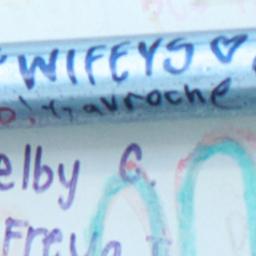 WIFEYS ♡
Gavroche
elby G.
Freya